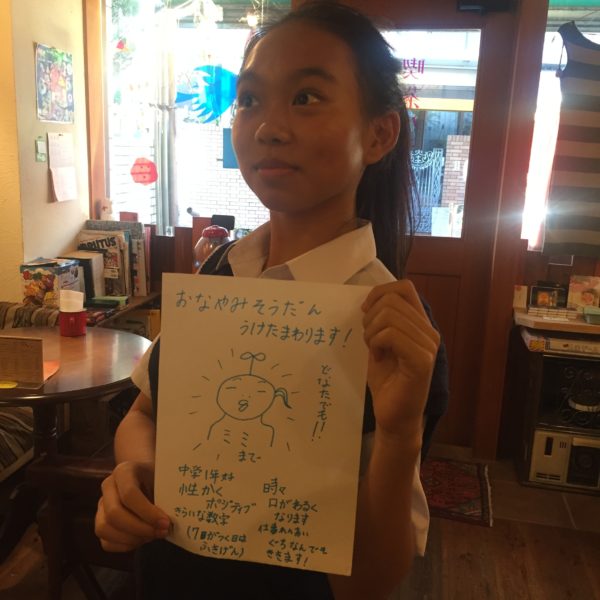 おなやみそうだん
うけたまわります!
どなたでも!!
ミミ
まで
中学1年女子
性かく
ポジティブ
きらいな数字
(7がつく日は
ふきげん)
時々
口がわるく
なります
仕事れんあい
ぐちなんでも
ききます!
BRUTUS
喫茶